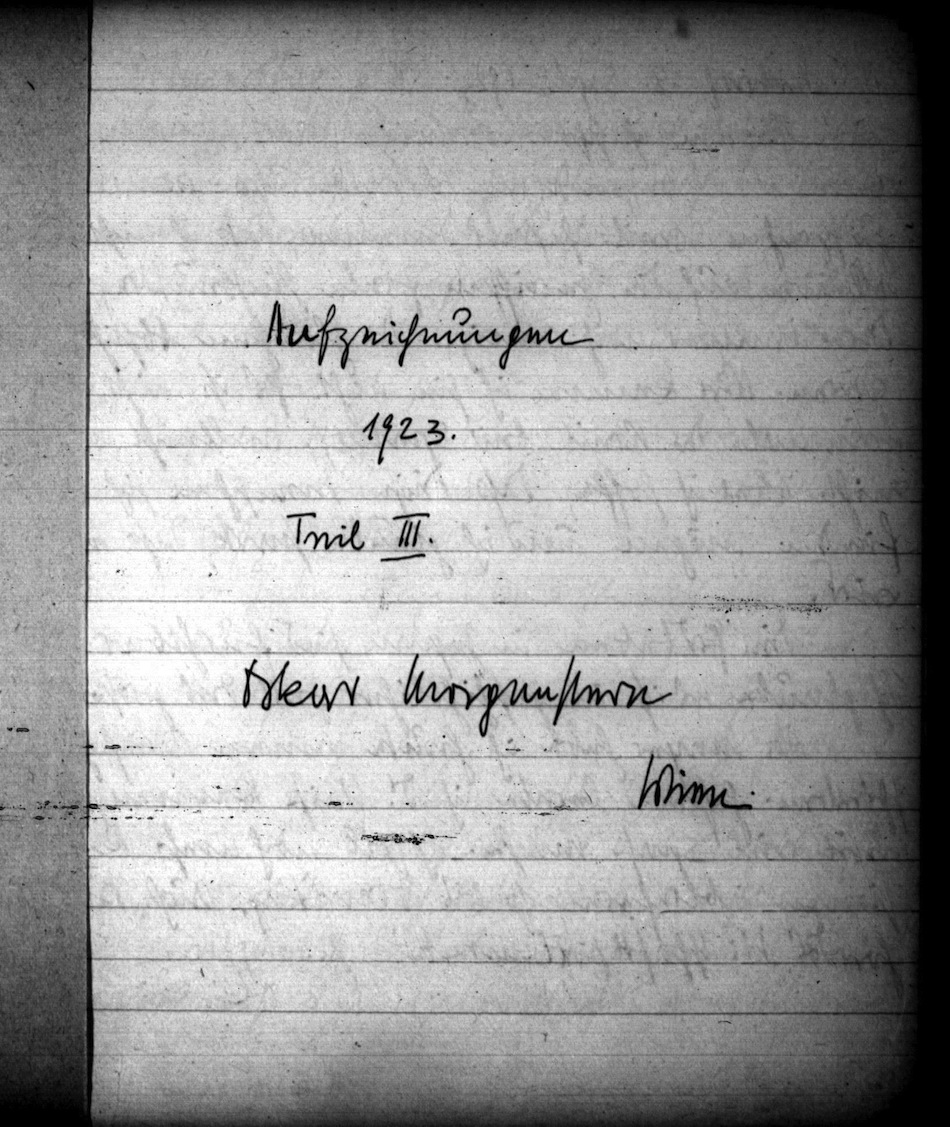 Aufzeichnungen
1923.
Teil III.
Oskar Morgenstern
Wien.